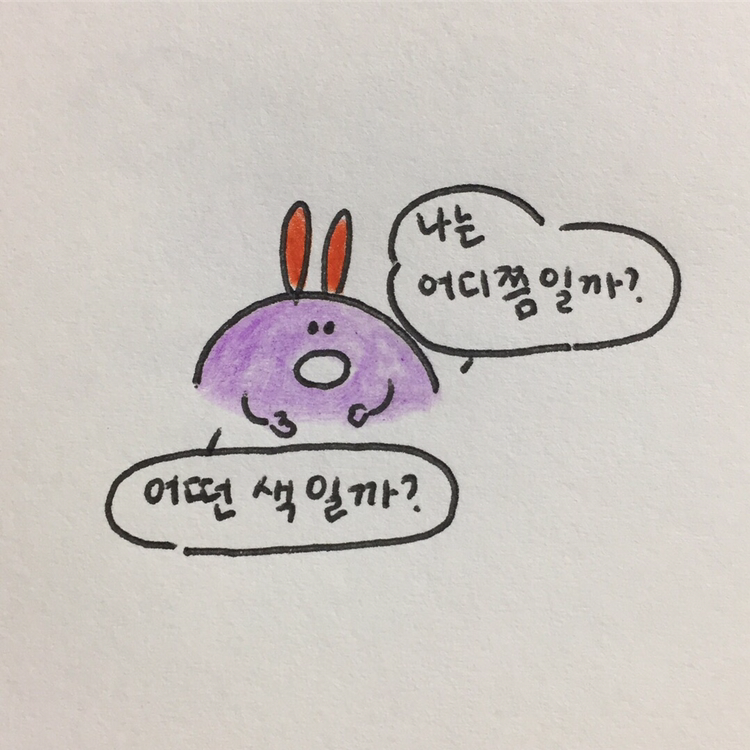 나는
어디쯤일까?
어떤 색일까?